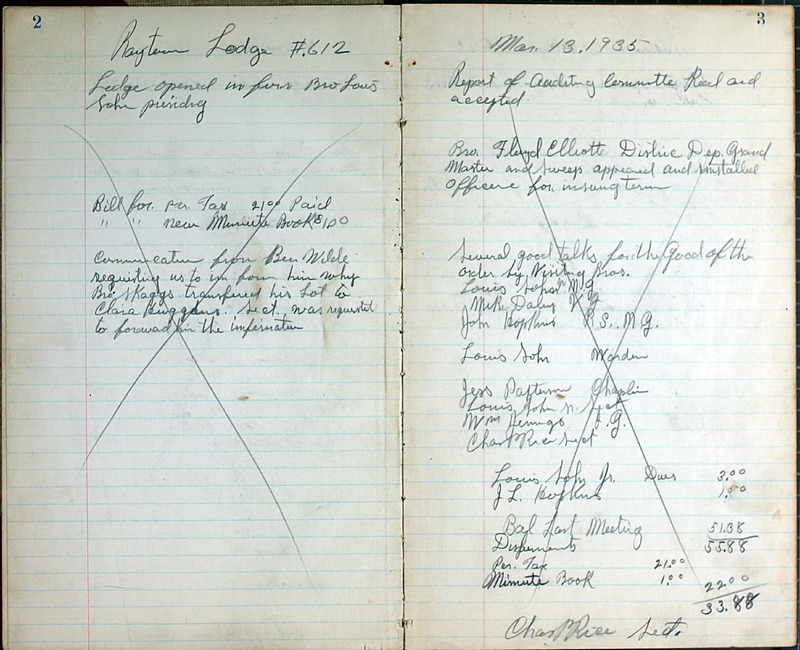 2
Raytown Lodge #.612
Lodge opened in form Bro Louis
Sohn presidng
Bill for. Per. Tax 21.00 Paid
" " new Minuete Book $1.00
Communication from Ben Wilde
requesting us to in form him why
Bro. Skaggs transfered his Lot to
Clara Huggans. Sect. was requested
to forward him the information
3
Mar. 13. 1935
Report of Auditing Committe Read and
accepted.
Bro. Floyd Elliotte Distric Dep. Grand
Master and sweeps appeared and installed
Officers for insuing term
Several good talks for the Good of the
order by Visiting Bros.
Louis Sohn N.G
Mike Daley V G
John Hopkins R. S. N G.
Louis Sohn Warden
Jess Patterson Chaplin
Louis John
Wm Jenings I. G.
Chas P Rice Sect
Louis Sohn Jr. Dues 3.00
J L. Hopkins 1.50
Bal Last Meeting 51.38
Dispersments 55.88
Per. Tax 21.00
Minuete Book 1.00 22 00
33.88
Chas P Rice Sect.